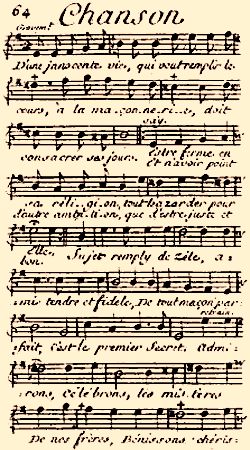 64 Chanson
Gravemt.
D'une jnnocente vie, qui veut remplir le
cours, à la ma_çon_ne_ri_e, doit
say.
consacrer ses jours. Estre ferme en
Et n'avoir point
sa réli_gi_on, tout hazarder pour
d'autre ambi_ti_on, que d'estre juste et
Elle.
bon. Sujet remply de zéle, a_
_mis tendre et fidele, De tout maçon par_
refrain.
_fait, c'est le premier Secret. Admi_
_rons, Célébrons, les mis_teres
De nos fréres, Bénissons chéris_